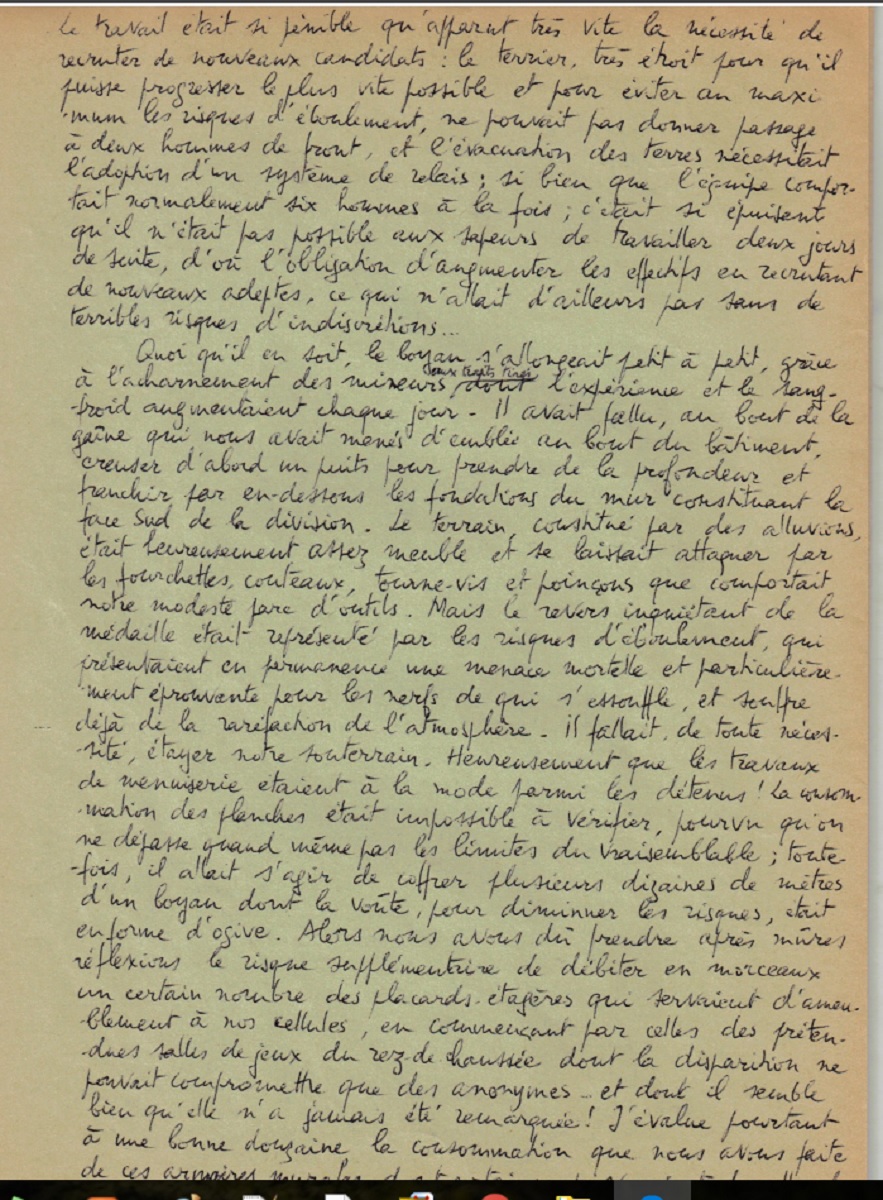 Le travail était si pénible qu'apparut très vite la nécessité de
recruter de nouveaux candidats : le terrier, très étroit pour qu'il
puisse progresser le plus vite possible et pour éviter au maxi
-mum les risques d'éboulement, ne pouvait pas donner passage
à deux hommes de front, et l'évacuation des terres nécessitait
l'adoption d'un système de relais ; si bien que l'équipe compor-
tait normalement six hommes à la fois ; c'était si épuisant
qu'il n'était pas possible aux sapeurs de travailler deux jours
de suite, d'où l'obligation d'augmenter les effectifs en recrutant
de nouveaux adeptes, ce qui n'allait d'ailleurs pas sans de
terribles risques d'indiscrétions...
Quoi qu'il en soit, le boyau s'allongeait petit à petit, grâce
à l'acharnement des mineurs dont l'expérience et le sang-
-froid augmentaient chaque jour - Il avait fallu, au bout de la
gaîne qui nous avait menés d'emblée au bout du bâtiment,
creuser d'abord un puits pour prendre de la profondeur et
franchir par en-dessous les fondations du mur constituant la
face Sud de la division. Le terrain, constitué par des alluvions,
était heureusement assez meuble et se laissait attaquer par
les fourchettes, couteaux, tourne-vis et poinçons que comportait
notre modeste parc d'outils. Mais le revers inquiétant de la
médaille était représenté par les risques d'éboulement, qui
présentaient en permanence une menace mortelle et particulière-
-ment éprouvante pour les nerfs de qui s'essouffle, et souffre
déjà de la raréfaction de l'atmosphère. Il fallait, de toute néces-
-sité, étayer notre souterrain. Heureusement que les travaux
de menuiserie étaient à la mode parmi les détenus ! La consom-
-mation des planches était impossible à vérifier, pourvu qu'on
ne dépasse quand même pas les limites du vraisemblable ; toute-
-fois, il allait s'agir de coffrer plusieurs dizaines de mètres
d'un boyau dont la voûte, pour diminuer les risques, était
en forme d'ogive. Alors nous avons dû prendre après mûres
réflexions le risque supplémentaire de débiter en morceaux
un certain nombre des placards-étagères qui servaient d'ameu-
-blement à nos cellules, en commençant par celles des préten-
-dues salles de jeux du rez-de-chaussée dont la disparition ne
pouvait compromettre que des anonymes... et dont il semble
bien qu'elle n'a jamais été remarquée ! J'évalue pourtant
à une bonne douzaine la consommation que nous avons faite
de ces armoires murales